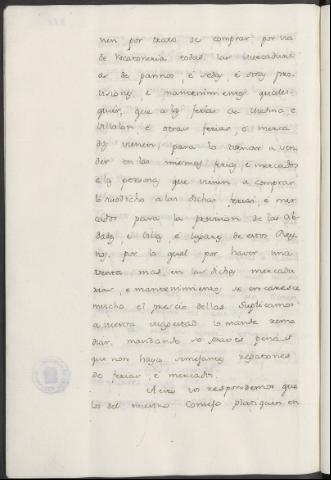 nen por trato de comprar por via
de Recatoneria todas las mercaduri
as de paños, é seda, é otras pro-
visiones, é mantenimientos quales-
quier, que a las ferias de Medina, é
Villalon é otras ferias, é merca
dos vienen, para lo tornar a ven
der en las mismas ferias, é mercados
a las personas que vienen a comprar
lo susodicho a las dichas ferias, é mer
cados para la provision de las Cib
dades, é Villas, é lugares de estos Rey-
nos, por lo qual por haver una
venta mas en las dichas mercadu
rias, é mantenimientos se en carece
mucho el precio dellas Suplicamos
a vuestra magestad lo mande reme
diar, mandando so graves penas
que non haya semejantes regatones
de ferias, é mercados.
A esto vos respondemos que
los del nuestro Consejo platiquen en